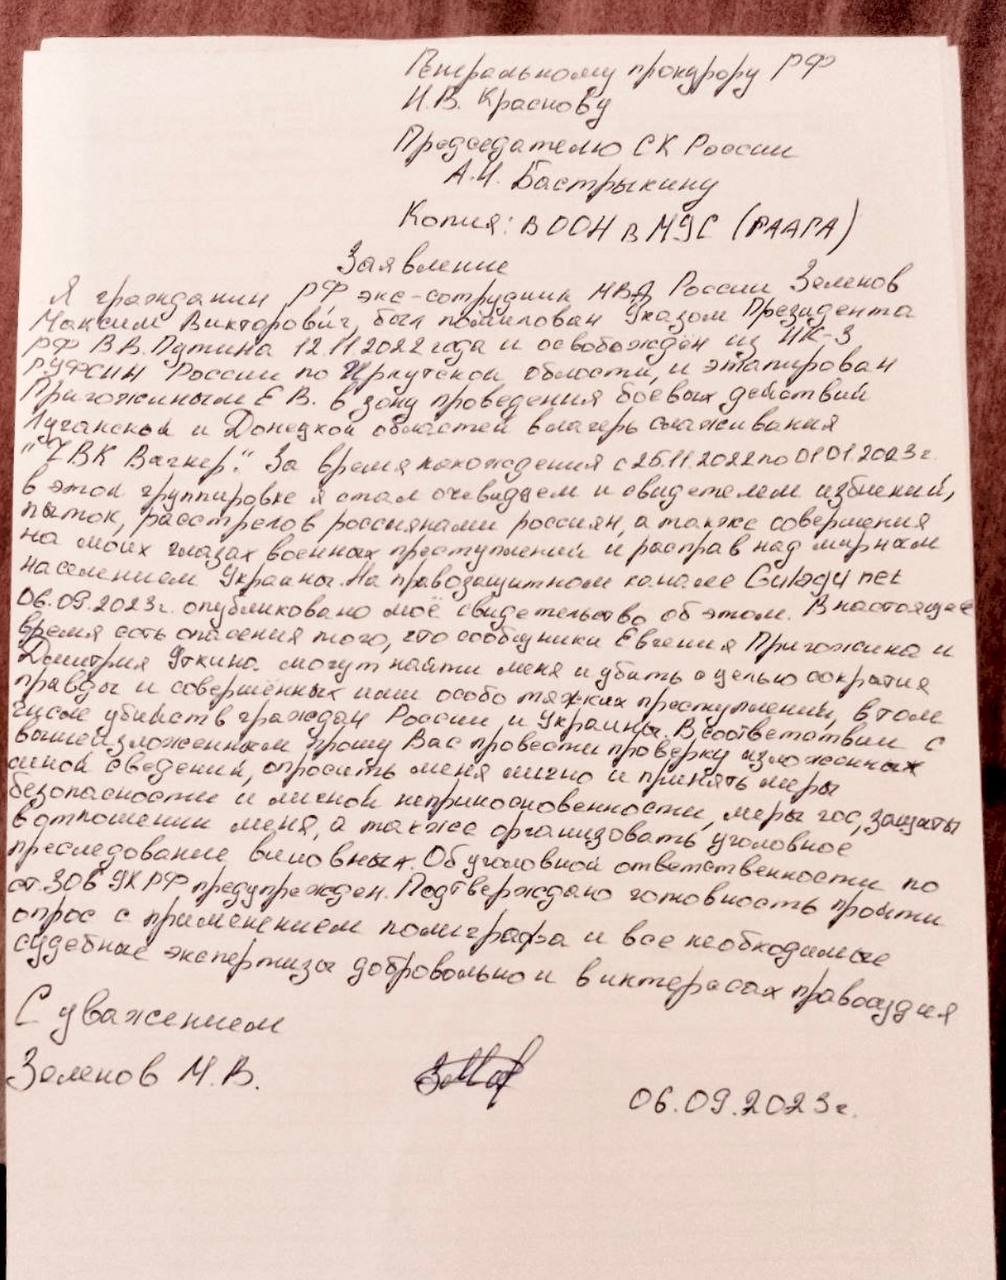 Генеральному прокурору РФ
И.В. Краснову
Председателю СК России
А.И. Бастрыкину
Копия: В ООН в МУС (ГААГА)
Заявление
Я гражданин РФ экс-сотрудник МВД России Зеленов
Максим Викторович, был помилован Указом Президента
РФ В.В. Путина 12.11.2022 года и освобожден из ИК-3
ГУФСИН России по Иркутской области, и этапирован
Пригожиным Е.В. в зону проведения боевых действий
Луганской и Донецкой областей в лагерь слаживания
"ЧВК Вагнер." За время нахождения с 25.11.2022 по 01.01.2023г.
в этой группировке я стал очевидцем и свидетелем избиений,
пыток, расстрелов россиянами россиян, а также совершения
на моих глазах военных преступлений и расправ над мирным
населением Украины. На правозащитном канале Gulagy net
06.09.2023г. опубликовано моё свидетельство об этом. В настоящее
время есть опасения того, что сообщники Евгения Пригожина и
Дмитрия Уткина могут найти меня и убить с целью сокрытия
правды и совершённых ими особо тяжких преступлений, в том
числе убийств граждан России и Украины. В соответствии с
вышеизложенным прошу Вас провести проверку изложенных
мной сведений, опросить меня лично и принять меры
безопасности и личной неприкосновенности, меры гос, защиты
в отношении меня, а также организовать уголовное
преследование виновных. Об уголовной ответственности по
ст. 306 УК РФ предупрежден. Подтверждаю готовность пройти
опрос с применением полиграфа и все необходимые
судебные экспертизы добровольно и в интересах правосудия
С уважением
Зеленов М.В.
06.09.2023г.